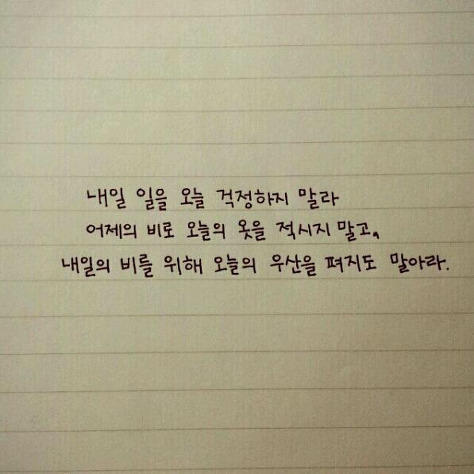 내일 일을 오늘 걱정하지 말라
어제의 비로 오늘의 옷을 적시지 말고,
내일의 비를 위해 오늘의 우산을 펴지도 말아라.